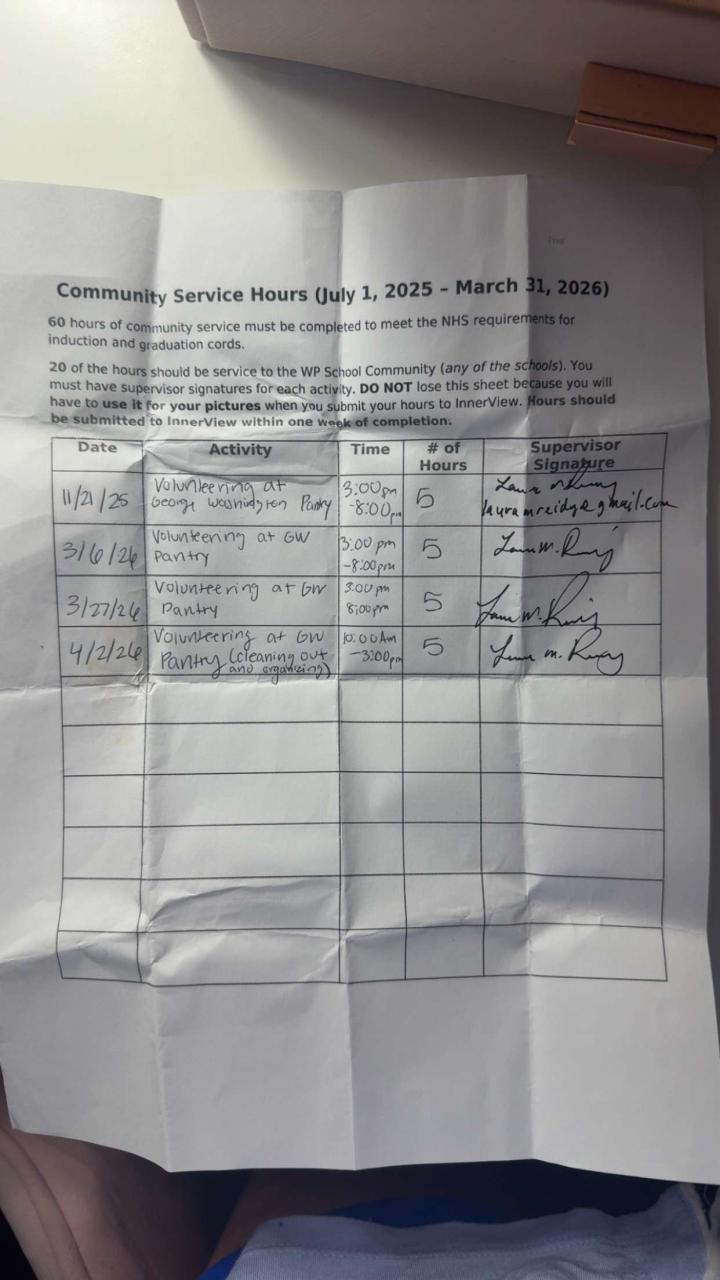 Community Service Hours (July 1, 2025 – March 31, 2026)
60 hours of community service must be completed to meet the NHS requirements for
induction and graduation cords.
20 of the hours should be service to the WP School Community (any of the schools). You
must have supervisor signatures for each activity. DO NOT lose this sheet because you will
have to use it for your pictures when you submit your hours to InnerView. Hours should
be submitted to InnerView within one week of completion.
Date Activity Time # of Hours Supervisor Signature
11/21/25 Volunteering at George Washington Pantry 3:00pm -8:00pm 5
3/6/26 Volunteering at GW Pantry 3:00 pm -8:00pm 5
3/27/26 Volunteering at GW Pantry 3:00 pm 8:00pm 5
4/2/26 Volunteering at GW Pantry (cleaning out and organizing) 10:00AM -3:00pm 5